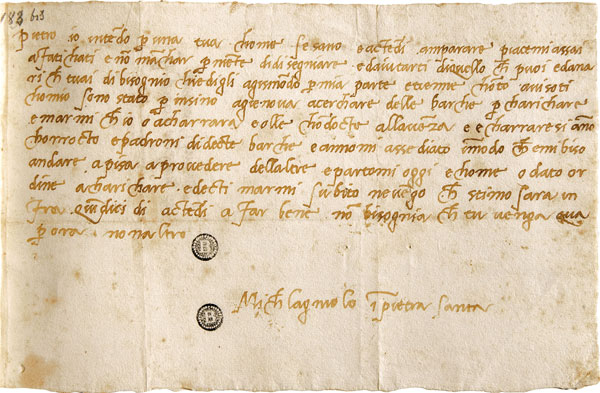 182 bis
pietro io intēdo p una tua chome se sano e actēdi amparare piacemi assai
afatichati e nō māchar p niēte di disegniare e daiutarti di quello ch̄ puoi e dana
ri ch̄ tu ai di bisognio agismōdo p mia parte e tieni chōto avisoti
chomio sono stato p insino agienova a cerchare delle barche p charichare
e marmi ch̄ io o acharrara e olle chōdocte allavēza e e charraresi āno
chorrocto e padroni di decte barche e annomi assediato ī modo ch̄ emi biso
andare a pisa a provedere dellaltre e partomi oggi e chome o dato or
dine a charichare e decti marmi subito ne vēgo ch̄ stimo sara in
fra quīdici di actēdi a far bene nō bisognia ch̄ tu venga qua
p ora non altro
Mich̄lagniolo ī pietra santa
B
B